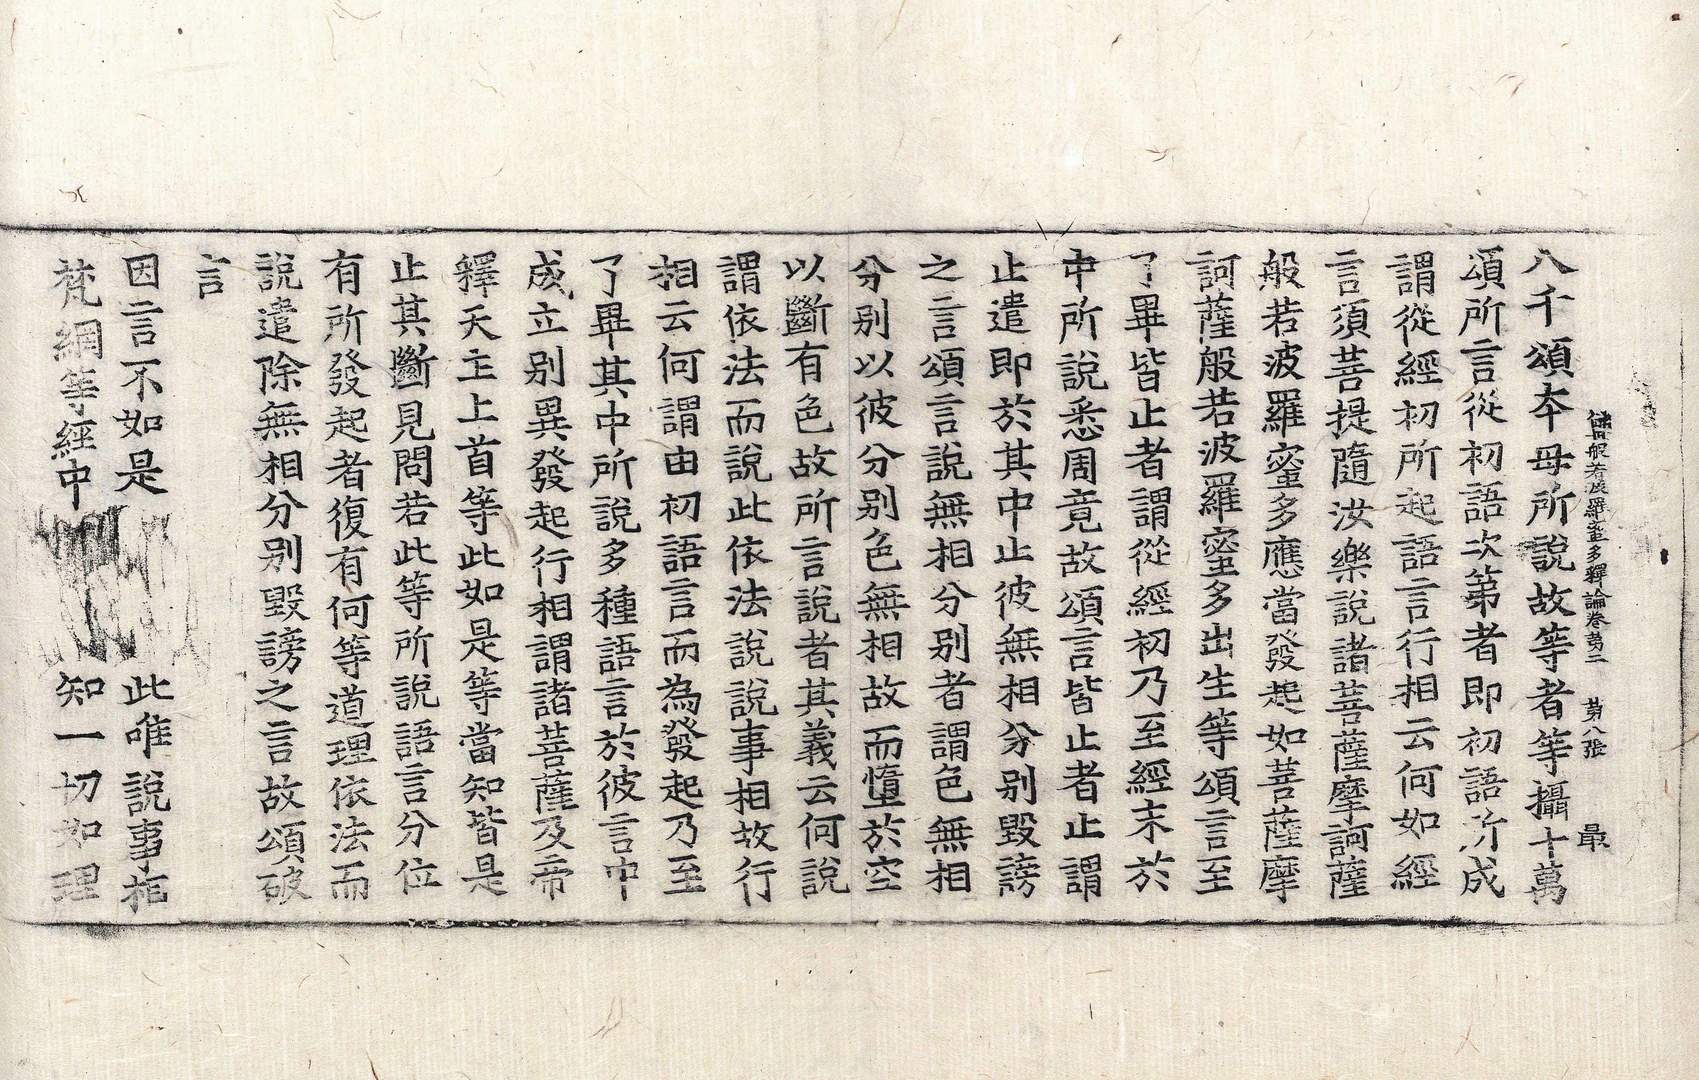 佛母般若波羅蜜多釋論卷第二 第八張 最
八千頌本母所說故等者等攝十萬
頌所言從初語次第者即初語所成
謂從經初所起語言行相云何如經
言須菩提隨汝樂說諸菩薩摩訶薩
般若波羅蜜多應當發起如菩薩摩
訶薩般若波羅蜜多出生等頌言至
了畢皆止者謂從經初乃至經末於
中所說悉周竟故頌言皆止者止謂
止遣即於其中止彼無相分別毀謗
之言頌言說無相分別者謂色無相
分別以彼分別色無相故而墮於空
以斷有色故所言說者其義云何說
謂依法而說此依法說說事相故行
相云何謂由初語言而為發起乃至
了畢其中所說多種語言於彼言中
成立別異發起行相謂諸菩薩及帝
釋天主上首等此如是等當知皆是
止其斷見問若此等所說語言分位
有所發起者復有何等道理依法而
說遣除無相分別毀謗之言故頌破
言
因言不如是 此唯說事相
梵網等經中 知一切如理